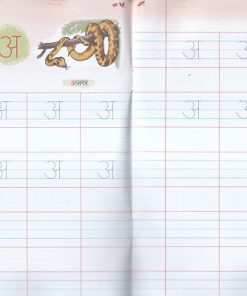 अ
अजगर
अ अ अ
अ अ अ
अ अ
अ अ